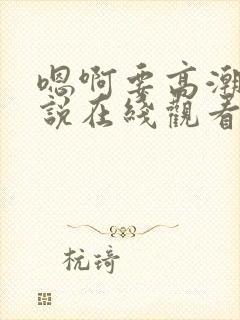 嗯啊要高潮
說在綫觀看
杭琦